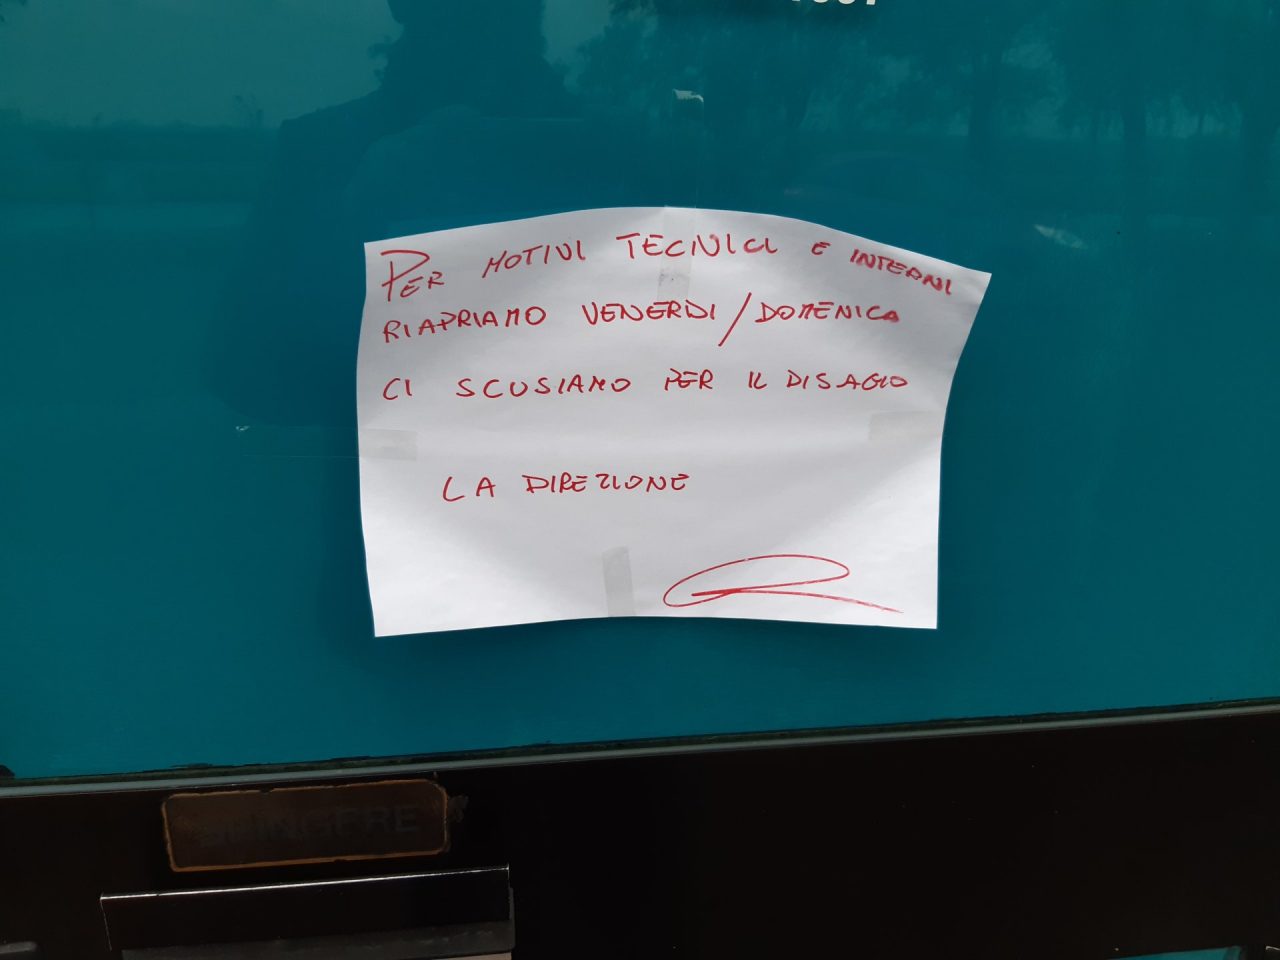 PER MOTIVI TECNICI E INTERNI
RIAPRIAMO VENERDI/DOMENICA
CI SCUSIAMO PER IL DISAGIO
LA DIREZIONE